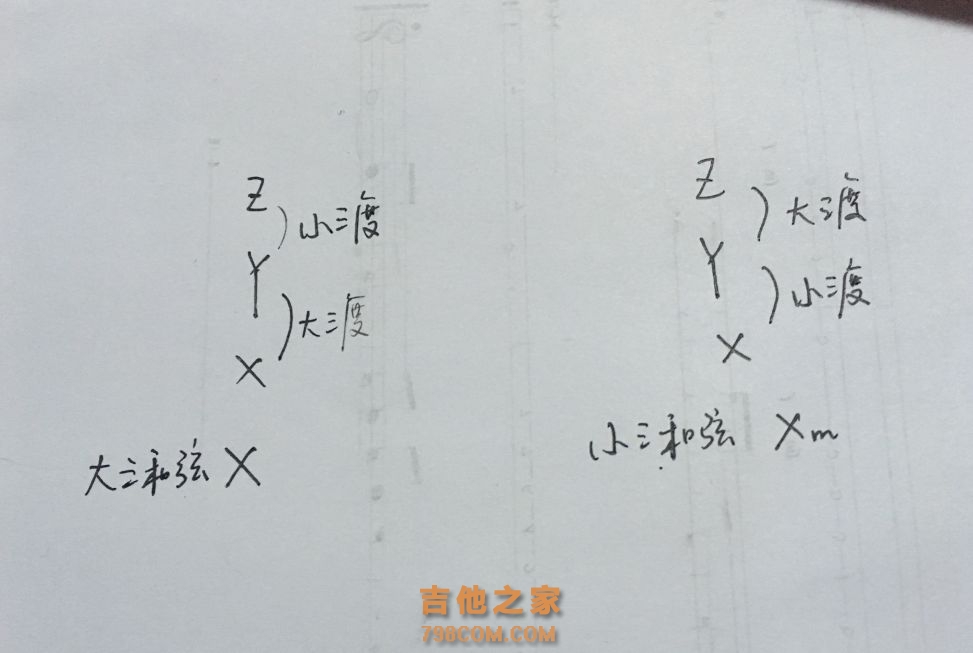 Z
小三度
Y
大三度
X
大三和弦 X
Z
大三度
Y
小三度
X
小三和弦 Xm
吉他之家
798COM.COM